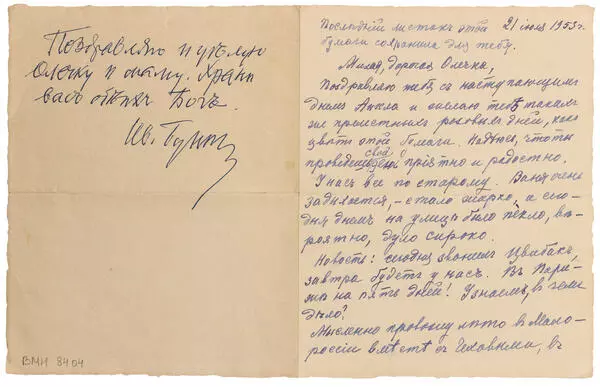 Поздравляю и целую
Олечку и маму. Храни
васъ обѣихъ Богъ.
Ив. Бунин
ВМИ 8404
Последнiй листокъ этой 21 iюля 1953 г.
бумаги сохранила для тебя.
Милая, дорогая Олечка,
Поздравляю тебя съ наступающимъ
днемъ Ангела и желаю тебѣ такихъ
же прiятныхъ розовыхъ дней, какъ
цвѣтъ этой бумаги. Надѣюсь, что ты
проведешь свой день прiятно и радостно.
У насъ все по старому. Ваня очень
задыхается, – стало жарко, а сего-
дня днемъ на улицѣ было пекло, вѣ-
роятно, дуло сироко.
Новость: сегодня звонилъ Цвибакъ,
завтра будетъ у насъ. Въ Пари-
жѣ на пять дней! Узнаемъ, въ чемъ
дѣло?
Мысленно провожу лѣто в Мало-
россiи вмѣстѣ съ Чеховыми, въ